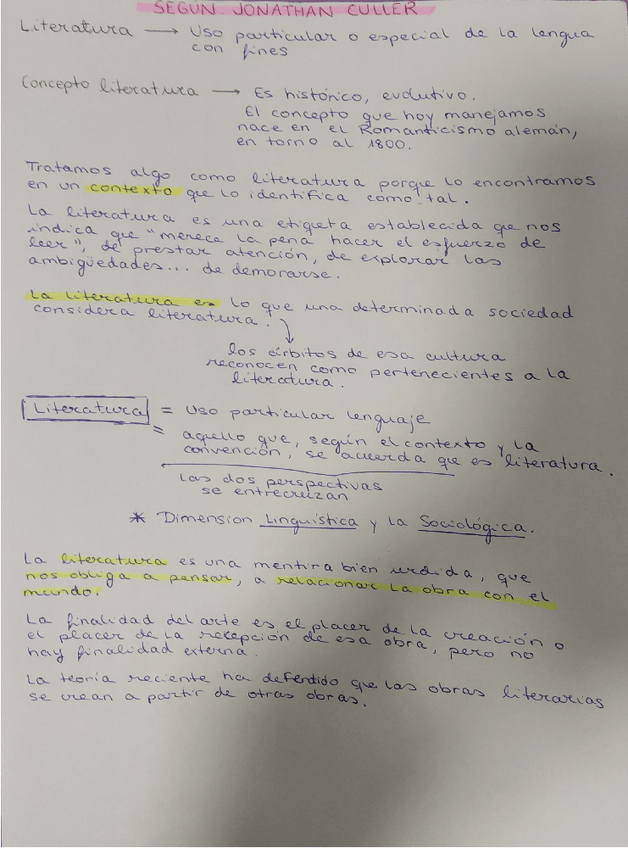 SEGÚN JONATHAN CULLER
Literatura → Uso particular o especial de la lengua
con fines
Concepto literatura → Es histórico, evolutivo.
El concepto que hoy manejamos
nace en el Romanticismo alemán,
en torno al 1800.
Tratamos algo como literatura porque lo encontramos
en un contexto que lo identifica como tal.
La literatura es una etiqueta establecida que nos
indica que "merece la pena hacer el esfuerzo de
leer", de prestar atención, de explorar las
ambigüedades... de demorarse.
La literatura es lo que una determinada sociedad
considera literatura.
los árbitos de esa cultura
reconocen como pertenecientes a la
literatura.
Literatura = Uso particular lenguaje
= aquello que, según el contexto y la
convención, se acuerda que es literatura.
Las dos perspectivas
se entrecruzan
* Dimension Linguística y la Sociológica.
La literatura es una mentira bien urdida, que
nos obliga a pensar, a relacionar la obra con el
mundo.
La finalidad del arte es el placer de la creación o
el placer de la recepción de esa obra, pero no
hay finalidad externa.
La teoría reciente ha defendido que las obras literarias
se crean a partir de otras obras.